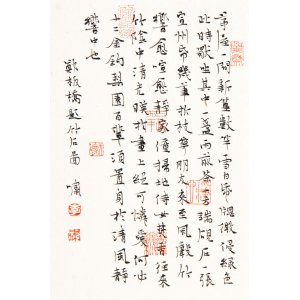 茅屋一間新篁數竿雪白帋窗微浸綠色
此時獨坐其中一盞雨前茶一方端硯石一張
宣州帋幾筆折枝花朋友來至風聲竹
響愈喧愈靜家僮掃地侍女焚香往來
竹陰中清光映於畫上絕可憐愛何必
十二金釵梨園百輩須置身於清風靜
響中也
鄭板橋題竹石圖 嘯